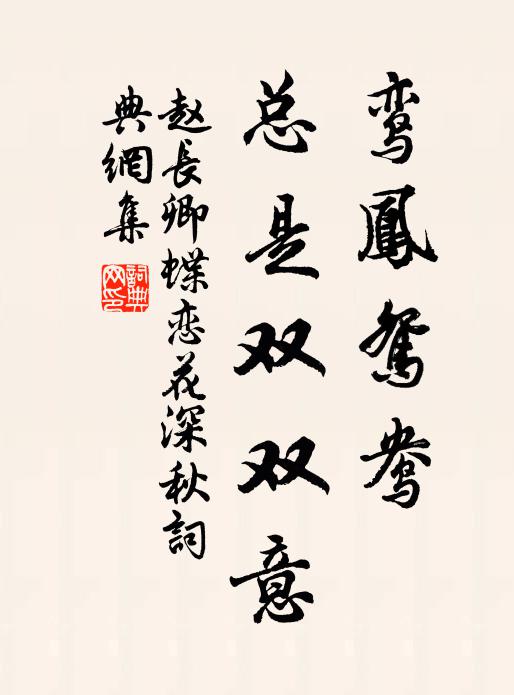 鸾鳳鴛鸯
总是双双意
赵長卿蝶恋花深秋詞
典網集
詞典网印